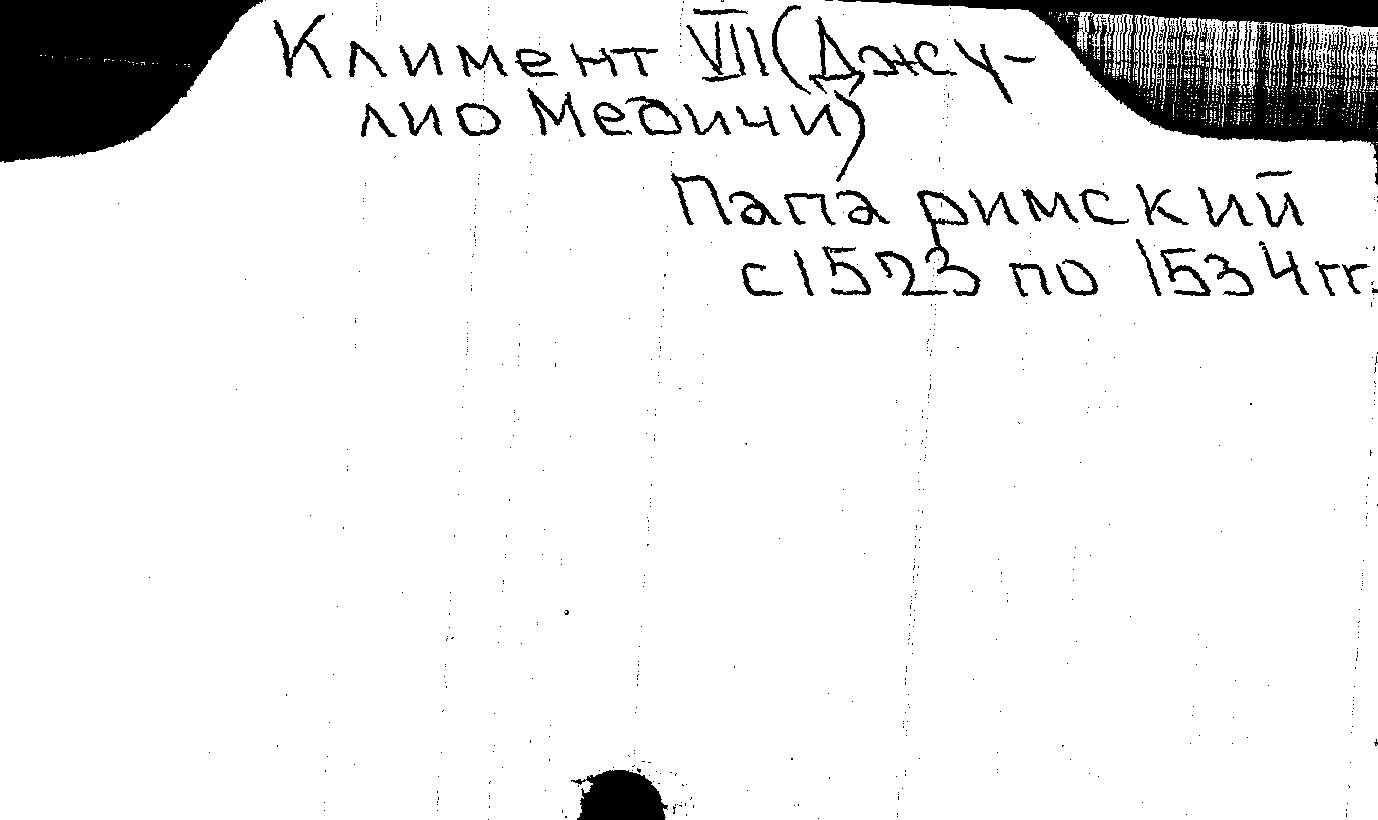 Климент VII (Джу-
лио Медичи)
Папа римский
с 1523 по 1534 гг.